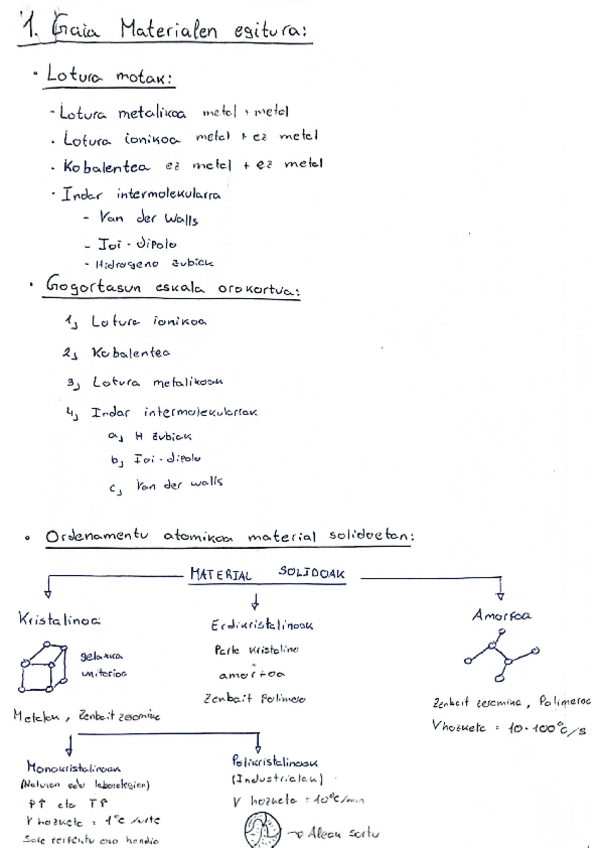 1. Gaia Materialen egitura:
· Lotura motak:
- Lotura metalikoa metal + metal
· Lotura ionikoa metal + ez metal
· Kobalentea ez metal + ez metal
· Indar intermolekularra
- Van der Walls
- Ioi-dipolo
- Hidrogeno zubiak
· Gogortasun eskala orokortua:
1, Lotura ionikoa
2, Kobalentea
3, Lotura metalikoak
4, Indar intermolekularrak
a, H zubiak
b, Ioi-dipolo
c, Van der walls
· Ordenamentu atomikoa material solidoetan:
MATERIAL SOLIDOAK
Kristalinoa
gelaxka
unitarioa
Metalen, Zenbait zeramika
Erdikristalinoak
Parte kristalino
+
amorfoa
Zenbait Polimero
Amorfoa
Zenbait zeramika, Polimeroa
V hozketa = 10-100°C/s
Monokristalinoak
(Naturan edo laborategian)
P↑ eta T↑
V hozketa = 1°C
Sare
Polikristalinoak
(Industrialak)
V hozketa = 10°C/min
→ Aleak sortu